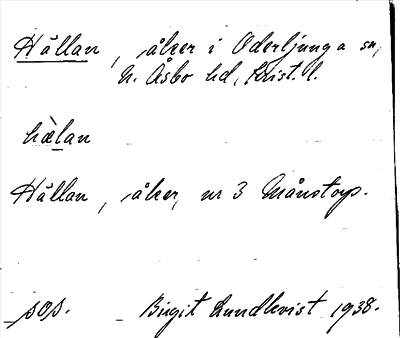 Hällan, åker i Oderljunga sn,
N. Åsbo hd, Krist. l.
hæ̀lan
Hällan, åker, nr 3 Månstorp.
sos. Birgit Lundkvist 1938.